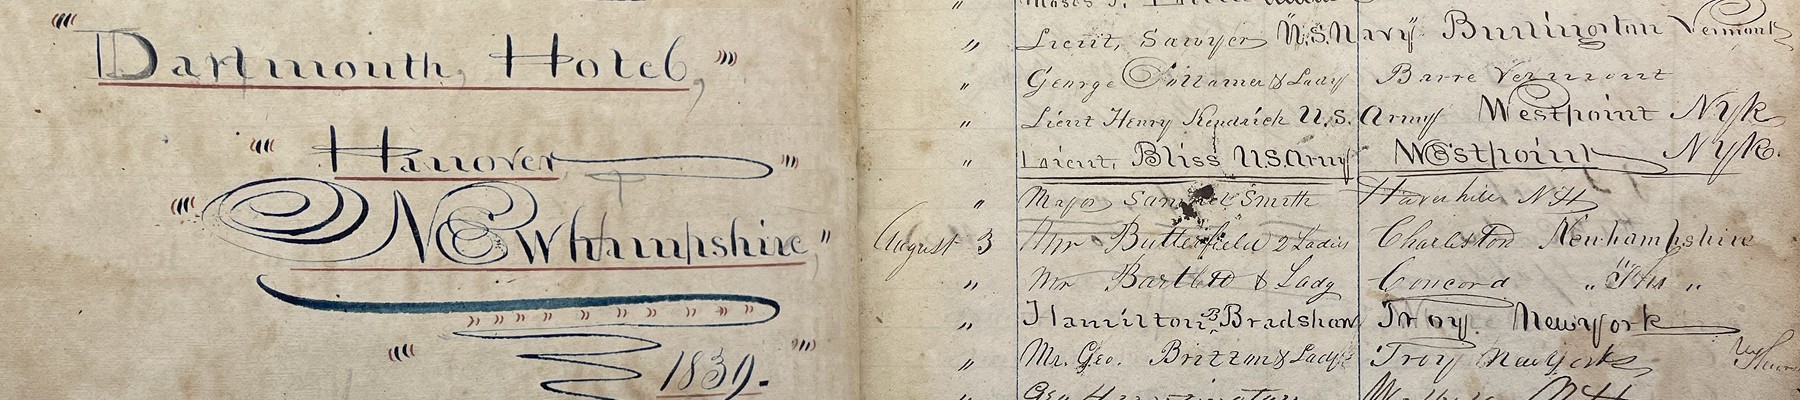 "Dartmouth, Hotel,"
"Hanover"
"New hampshire,"
1839.
" Lieut, Sawyer U.S. Navy Burlington Vermont
" George & Lady Barre Vermont
" Lieut Henry Kendrick U.S. Army Westpoint NYk
" Lieut, Bliss U.S. Army Westpoint NYk.
" Major Samuel Smith Haverhill NH
August 3 Mr Butterfield 2 Ladies Charleston Newhampshire
" Mr Bartlett & Lady Concord " This "
" Hamilton B Bradshaw Troy. Newyork
" Mr. Geo. Britton & Lady Troy NewYork